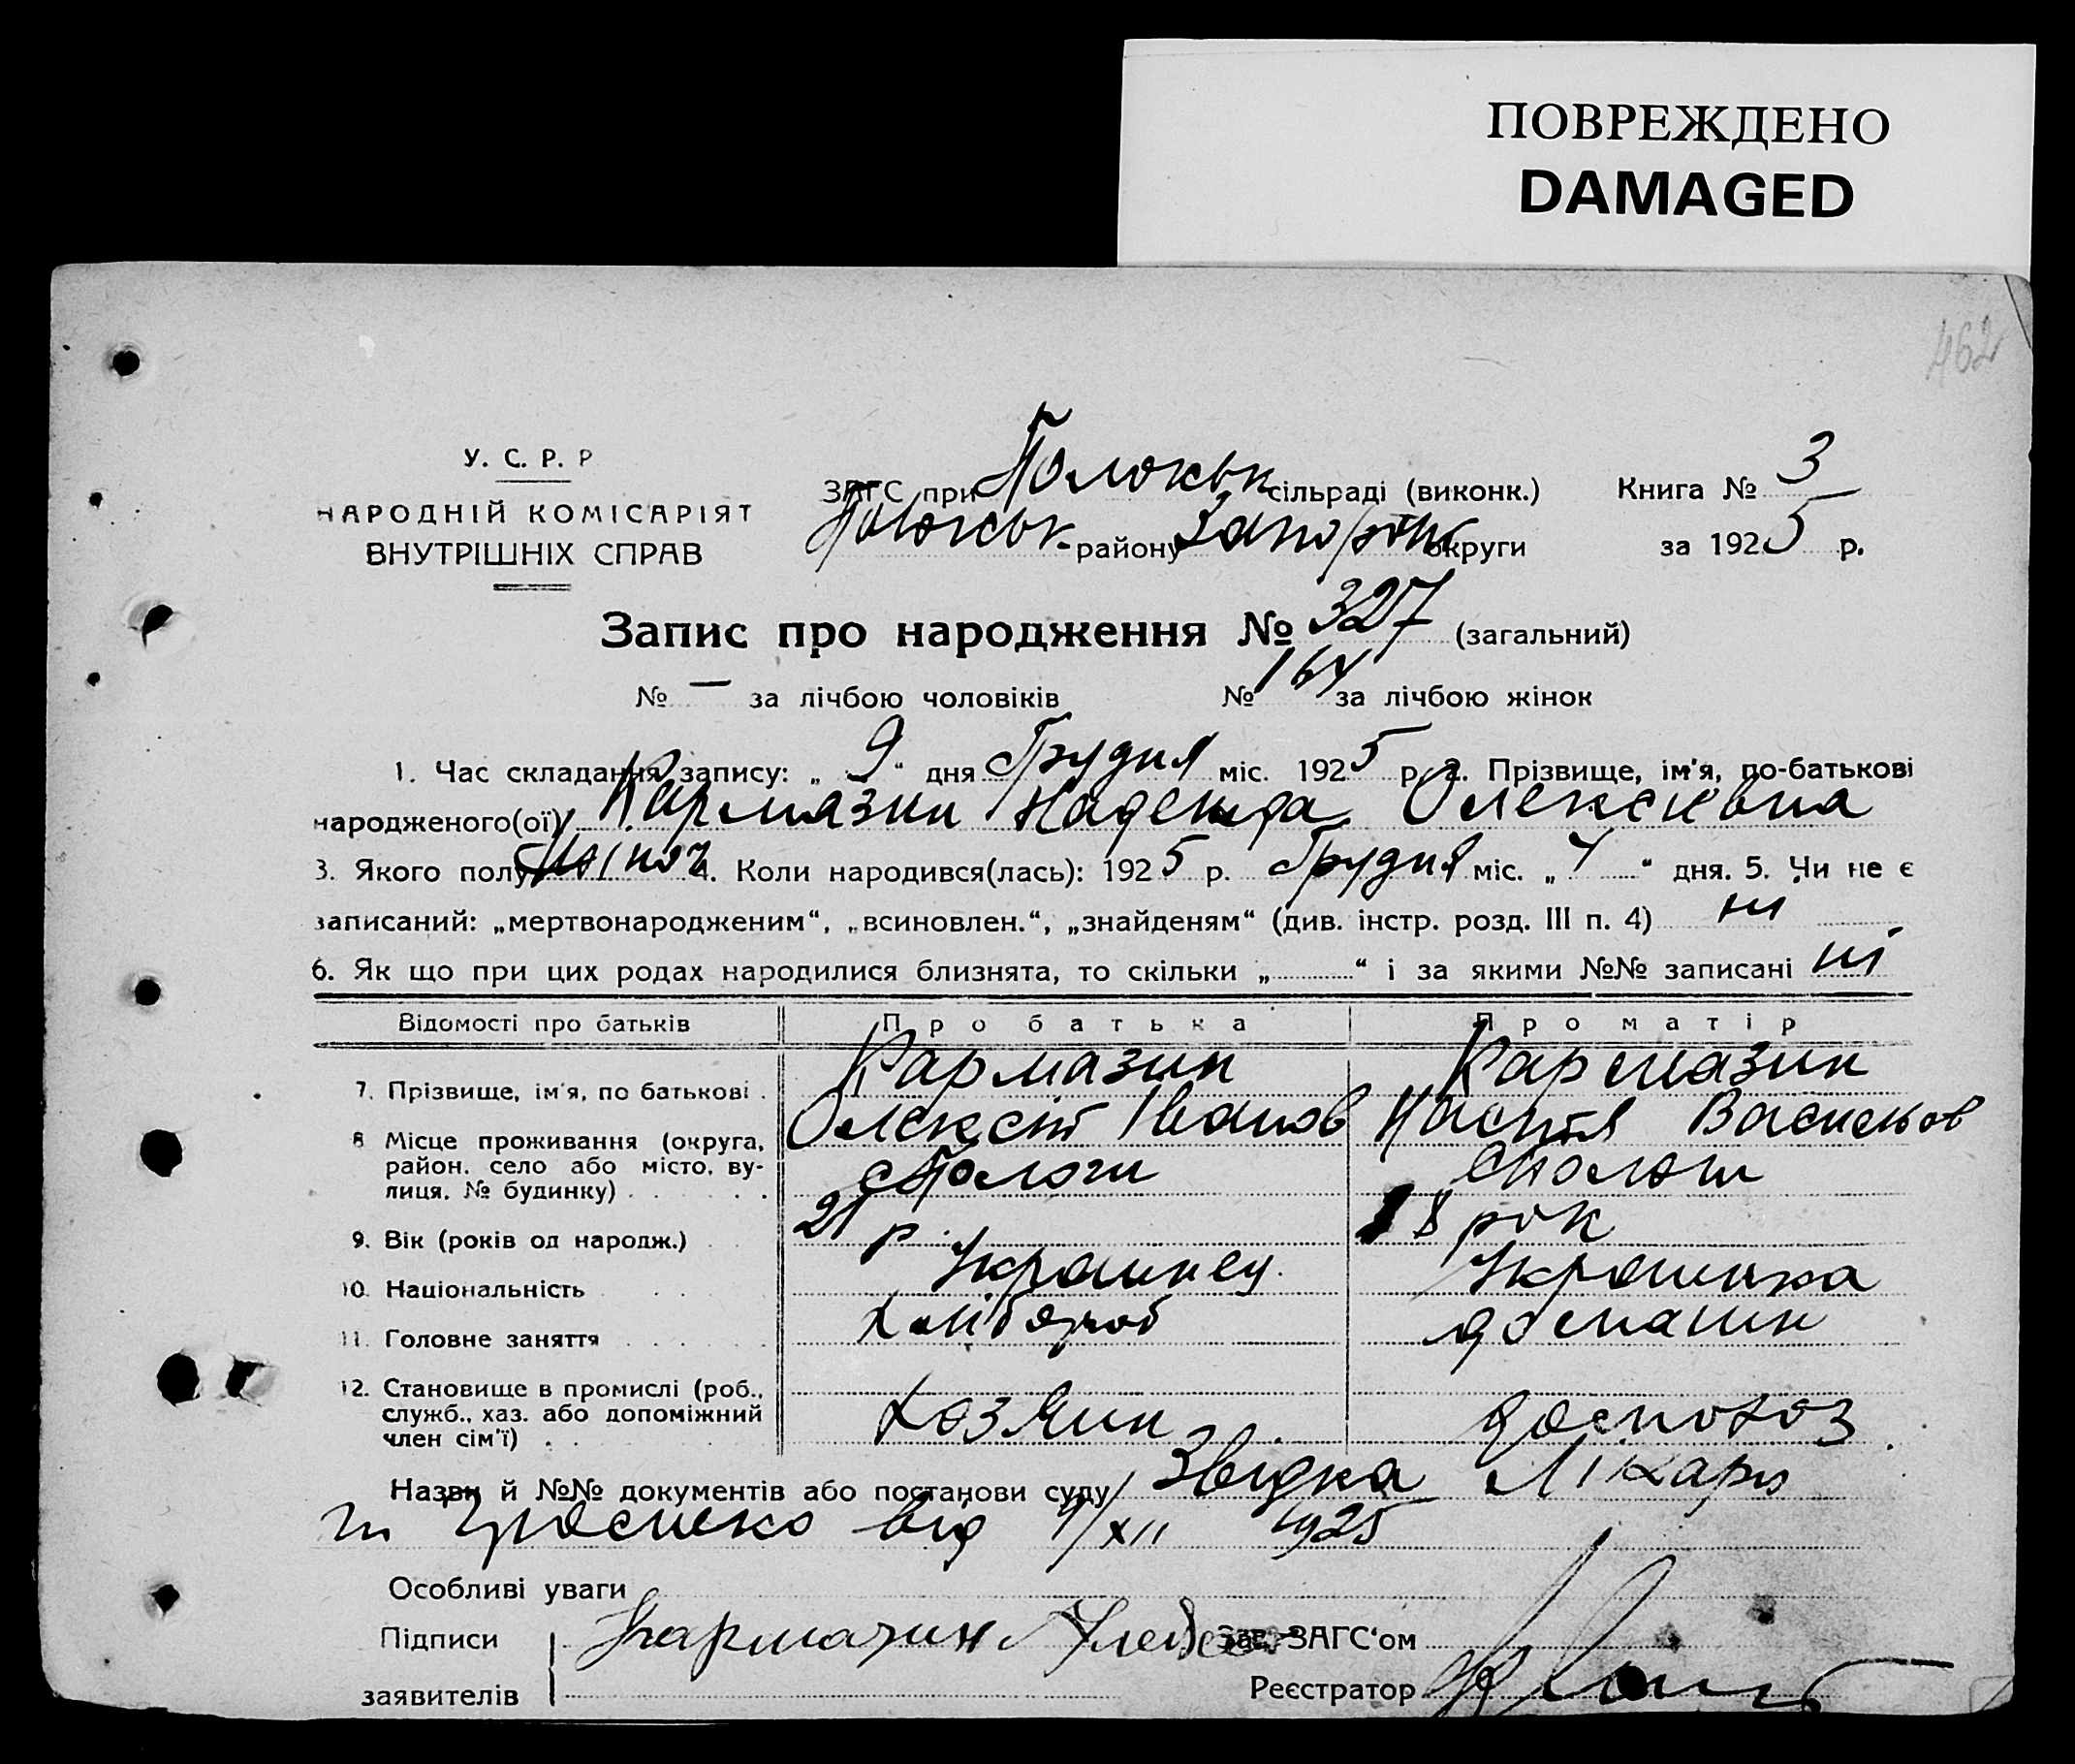 ПОВРЕЖДЕНО
DAMAGED
462
У. С. Р. Р
НАРОДНІЙ КОМІСАРІЯТ
ВНУТРІШНІХ СПРАВ
ЗАГС при Пологськ сільраді (виконк.) Книга № 3
Пологськ. району Запоріж округи за 1925 р.
Запис про народження № 327 (загальний)
№ — за лічбою чоловіків № 164 за лічбою жінок
1. Час складання запису: „ 9 “ дня Грудня міс. 1925 р. 2. Прізвище, ім'я, по-батькові
народженого(ої) Кармазин Надежда Олексієвна
3. Якого полу 4. Коли народився(лась): 1925 р. Грудня міс. „ “ дня. 5. Чи не є
записаний: „мертвонародженим“, „всиновлен.“, „знайденям“ (див. інстр. розд. III п. 4) ні
6. Як що при цих родах народилися близнята, то скільки „ “ і за якими №№ записані ні
Відомості про батьків Про батька Про матір
7. Прізвище, ім'я, по батькові . Кармазин Олексій Іванов Кармазин Настя Васильов
8 Місце проживання (округа, район, село або місто, вулиця, № будинку) . . . . с Пологи с Пологи
9. Вік (років од народж.) . . 21 р. 18 рок
10. Національність . . . . Украинец. Украинка
11. Головне заняття . . . . . . Хлібороб домашн
12. Становище в промислі (роб., служб., хаз. або допоміжний член сім'ї) . . Хозяин
Назви й №№ документів або постанови суду Звидка Лікаря
від /XII 1925
Особливі уваги
Підписи Кармазин Зав. ЗАГС‘ом
заявителів Реєстратор